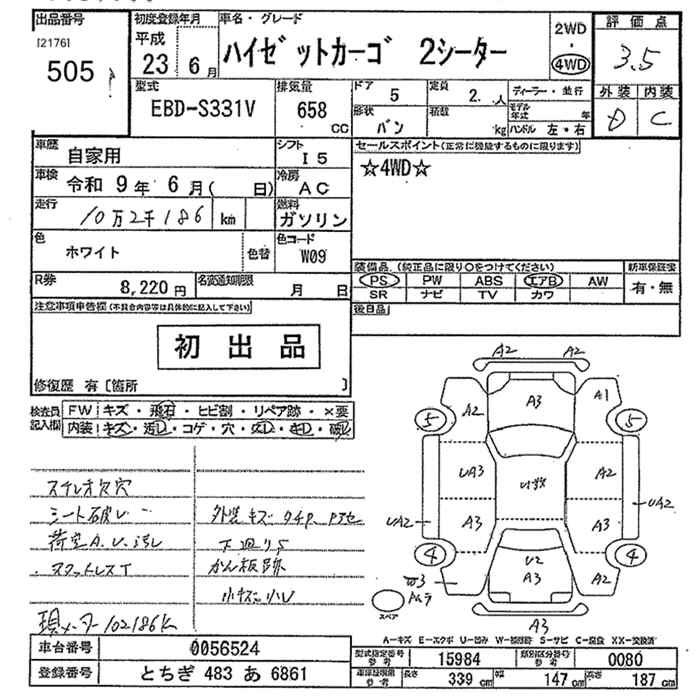 出品番号
[2176]
505
初度登録年月
平成
23 6月
車名・グレード
ハイゼットカーゴ 2シーター
2WD
・
4WD
評価点
3.5
外装 内装
D C
型式
EBD-S331V
排気量
658
cc
ドア 5
定員 2 人
形状 バン
積載 kg
ディーラー・並行
モデル年式 年
ハンドル 左・右
車歴 自家用
シフト I5
車検 令和 9年 6月( 日)
冷房 AC
走行 10万2千186 km
燃料 ガソリン
色 ホワイト 色替
色コード W09
R券 8,220円
名変通知期限 月 日
セールスポイント(正常に機能するものに限ります)
☆4WD☆
装備品 (純正品に限り○をつけてください)
PS PW ABS エアB AW
SR ナビ TV カワ
新車保証書
有・無
後日品
注意事項申告欄(不具合内容等は具体的に記入して下さい)
初出品
修復歴 有〔箇所 〕
検査員記入欄
FW キズ・飛石・ヒビ割・リペア跡・×要
内装 キズ・汚レ・コゲ・穴・スレ・キレ・破レ
ステレオ欠穴
シート破レ
荷室A.U.汚レ
スタットレスT
外装キズ
下廻りS
かん板跡
現メーター102186K
A2 A2
A2 A3 A1
5 5
UA3 A2
UA2 A3 A3 UA2
4 4
W3 U2 A3 A2
スペア
A3
A-キズ E-エクボ U-凹み W-補修跡 S-サビ C-腐食 XX-交換済
車台番号 0056524
登録番号 とちぎ 483 あ 6861
型式指定番号 参考 15984
類別区分番号 参考 0080
車庫証明用 参考
長さ 339 cm 幅 147 cm 高さ 187 cm